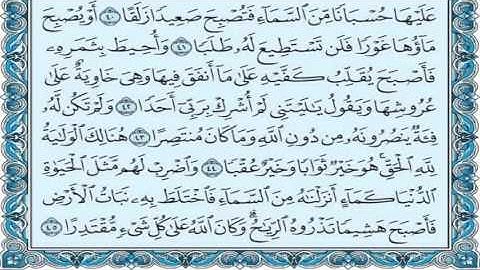 عَلَيْهَا حُسْبَانًا مِّنَ ٱلسَّمَآءِ فَتُصْبِحَ صَعِيدًا زَلَقًا ٤٠ أَوْ يُصْبِحَ
مَآؤُهَا غَوْرًا فَلَن تَسْتَطِيعَ لَهُۥ طَلَبًا ٤١ وَأُحِيطَ بِثَمَرِهِۦ
فَأَصْبَحَ يُقَلِّبُ كَفَّيْهِ عَلَىٰ مَآ أَنفَقَ فِيهَا وَهِىَ خَاوِيَةٌ عَلَىٰ
عُرُوشِهَا وَيَقُولُ يَٰلَيْتَنِى لَمْ أُشْرِكْ بِرَبِّىٓ أَحَدًا ٤٢ وَلَمْ تَكُن لَّهُۥ
فِئَةٌ يَنصُرُونَهُۥ مِن دُونِ ٱللَّهِ وَمَا كَانَ مُنتَصِرًا ٤٣ هُنَالِكَ ٱلْوَلَٰيَةُ
لِلَّهِ ٱلْحَقِّ ۚ هُوَ خَيْرٌ ثَوَابًا وَخَيْرٌ عُقْبًا ٤٤ وَٱضْرِبْ لَهُم مَّثَلَ ٱلْحَيَوٰةِ
ٱلدُّنْيَا كَمَآءٍ أَنزَلْنَٰهُ مِنَ ٱلسَّمَآءِ فَٱخْتَلَطَ بِهِۦ نَبَاتُ ٱلْأَرْضِ
فَأَصْبَحَ هَشِيمًا تَذْرُوهُ ٱلرِّيَٰحُ ۗ وَكَانَ ٱللَّهُ عَلَىٰ كُلِّ شَىْءٍ مُّقْتَدِرًا ٤٥